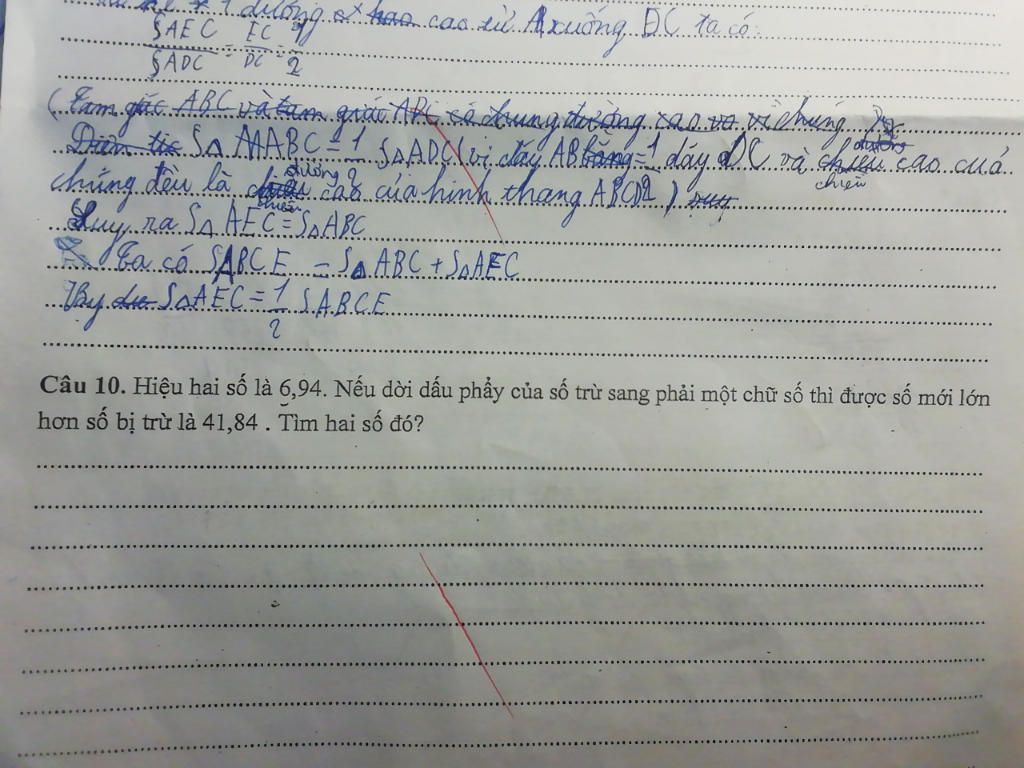 1 đường cao từ A xuống DC ta có:
SAEC = EC = 1
SADC DC 2
(Tam giác ABC và tam giác ADC có chung đường cao vì chúng
Diện tíc S△ AABC = 1 S△ADC (vì đáy AB bằng = 1 đáy DC và chiều cao của
đường
chúng đều là chiều cao của hình thang ABCD 2 )
Suy ra S△ AEC = S△ ABC
Ta có SABCE = S△ ABC + S△AEC
Vậy S△AEC = 1 SABCE
2
Câu 10. Hiệu hai số là 6,94. Nếu dời dấu phẩy của số trừ sang phải một chữ số thì được số mới lớn
hơn số bị trừ là 41,84 . Tìm hai số đó?